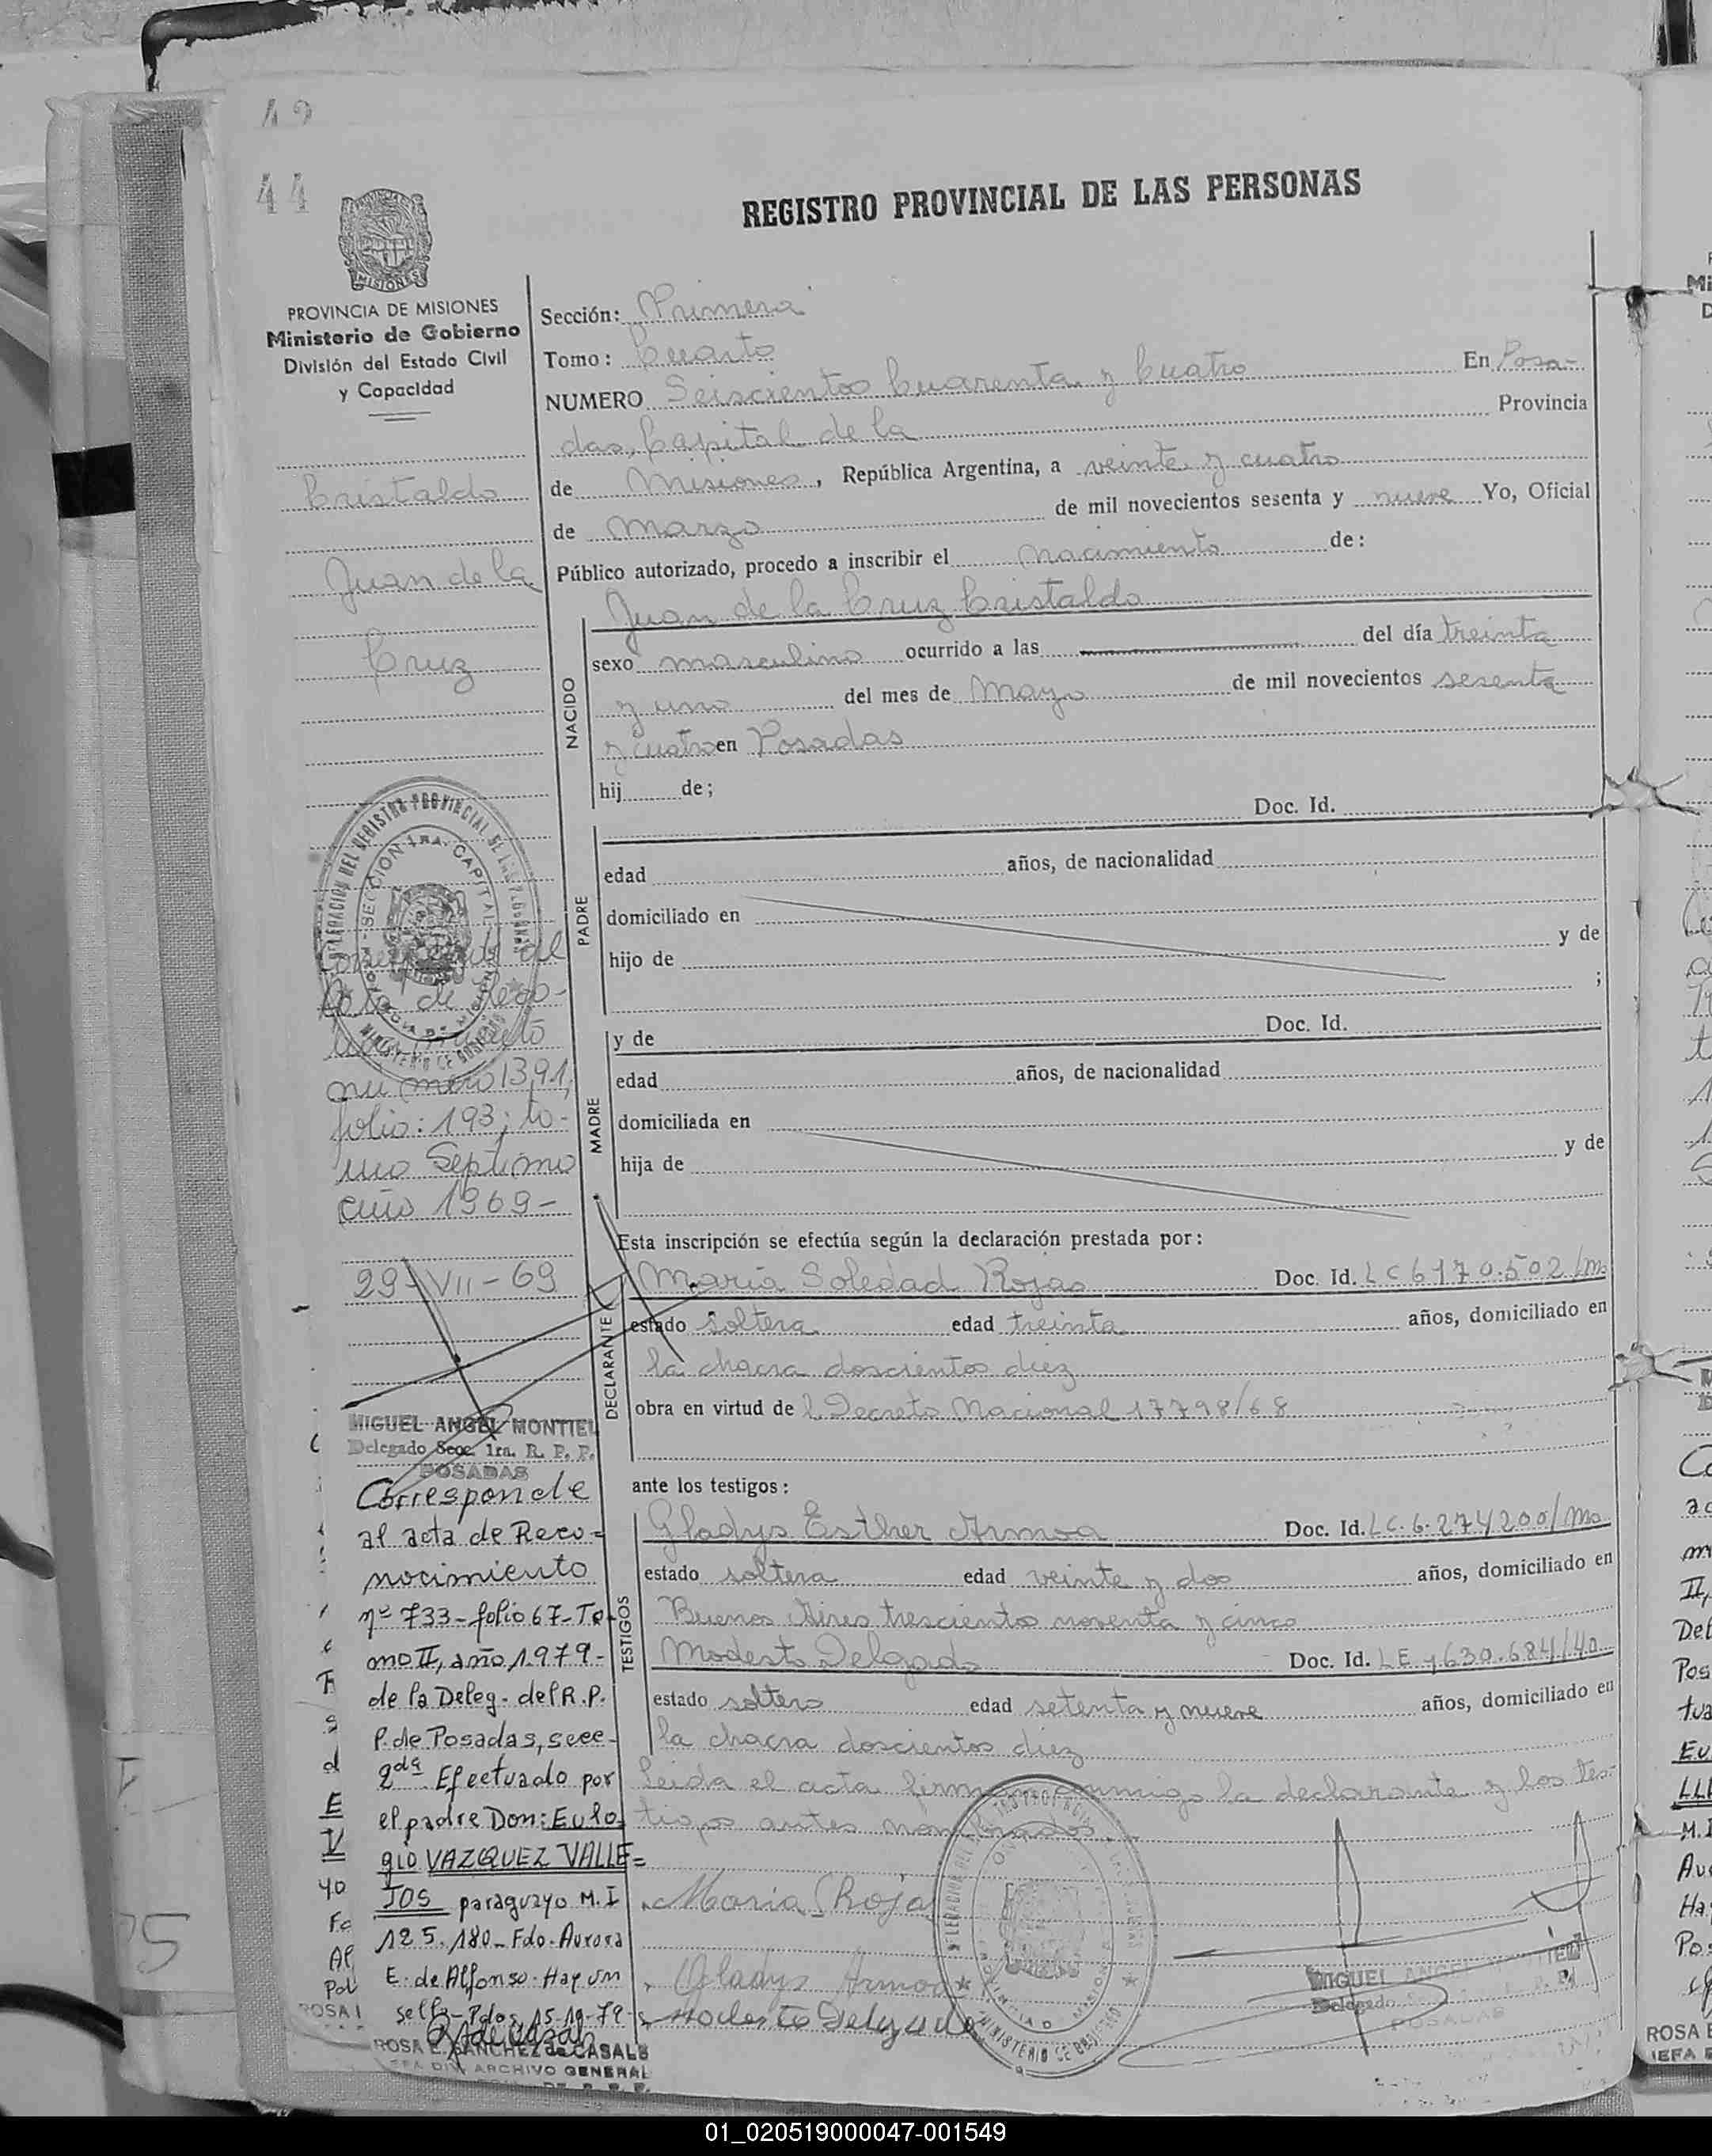 42
44
REGISTRO PROVINCIAL DE LAS PERSONAS
MISIONES
PROVINCIA DE MISIONES
Ministerio de Gobierno
División del Estado Civil
y Capacidad
Cristaldo
Juan de la
Cruz
Sección: Primera
Tomo: Cuarto
NUMERO Seiscientos Cuarenta y Cuatro En Posa-
das, Capital de la Provincia
de Misiones, República Argentina, a veinte y cuatro
de Marzo de mil novecientos sesenta y nueve Yo, Oficial
Público autorizado, procedo a inscribir el nacimiento de:
Juan de la Cruz Cristaldo
NACIDO
sexo masculino ocurrido a las del día treinta
y uno del mes de Mayo de mil novecientos sesenta
y cuatro en Posadas
hij de;
Doc. Id.
PADRE
edad años, de nacionalidad
domiciliado en
hijo de y de
;
y de Doc. Id.
MADRE
edad años, de nacionalidad
domiciliada en
hija de y de
Esta inscripción se efectúa según la declaración prestada por:
DECLARANTE
María Soledad Rojas Doc. Id. LC 6170.502/m
estado soltera edad treinta años, domiciliado en
la chacra doscientos diez
obra en virtud del Decreto Nacional 17798/68
ante los testigos:
TESTIGOS
Gladys Esther Armoa Doc. Id. LC.6.274200/Ms
estado soltera edad veinte y dos años, domiciliado en
Buenos Aires trescientos noventa y cinco
Modesto Delgado Doc. Id. LE 630.684/40
estado soltero edad setenta y nueve años, domiciliado en
la chacra doscientos diez
Leída el acta firman conmigo la declarante y los tes-
tigos antes nombrados.
María Rojas
Gladys Armoa
Modesto Delgado
MIGUEL ANGEL MONTIEL
Delegado
POSADAS
al
Acta de Reco-
nú mero 1391,
folio: 193; to-
mo Septimo
año 1969-
29-VII-69
MIGUEL ANGEL MONTIEL
Delegado Secc. 1ra. R. P. P.
POSADAS
Corresponde
al acta de Reco=
nocimiento
nº 733-folio 67-To-
mo II, año 1979-
de la Deleg. del R.P.
P. de Posadas, secc-
2da Efectuado por
el padre Don: Eulo
gio VAZQUEZ VALLE=
JOS paraguayo M.I
125.180- Fdo. Aurora
E. de Alfonso. Hay un
sello-Pdas, 15-10-79
ROSA E. SANCHEZ de CASALS
ARCHIVO GENERAL
01_020519000047-001549